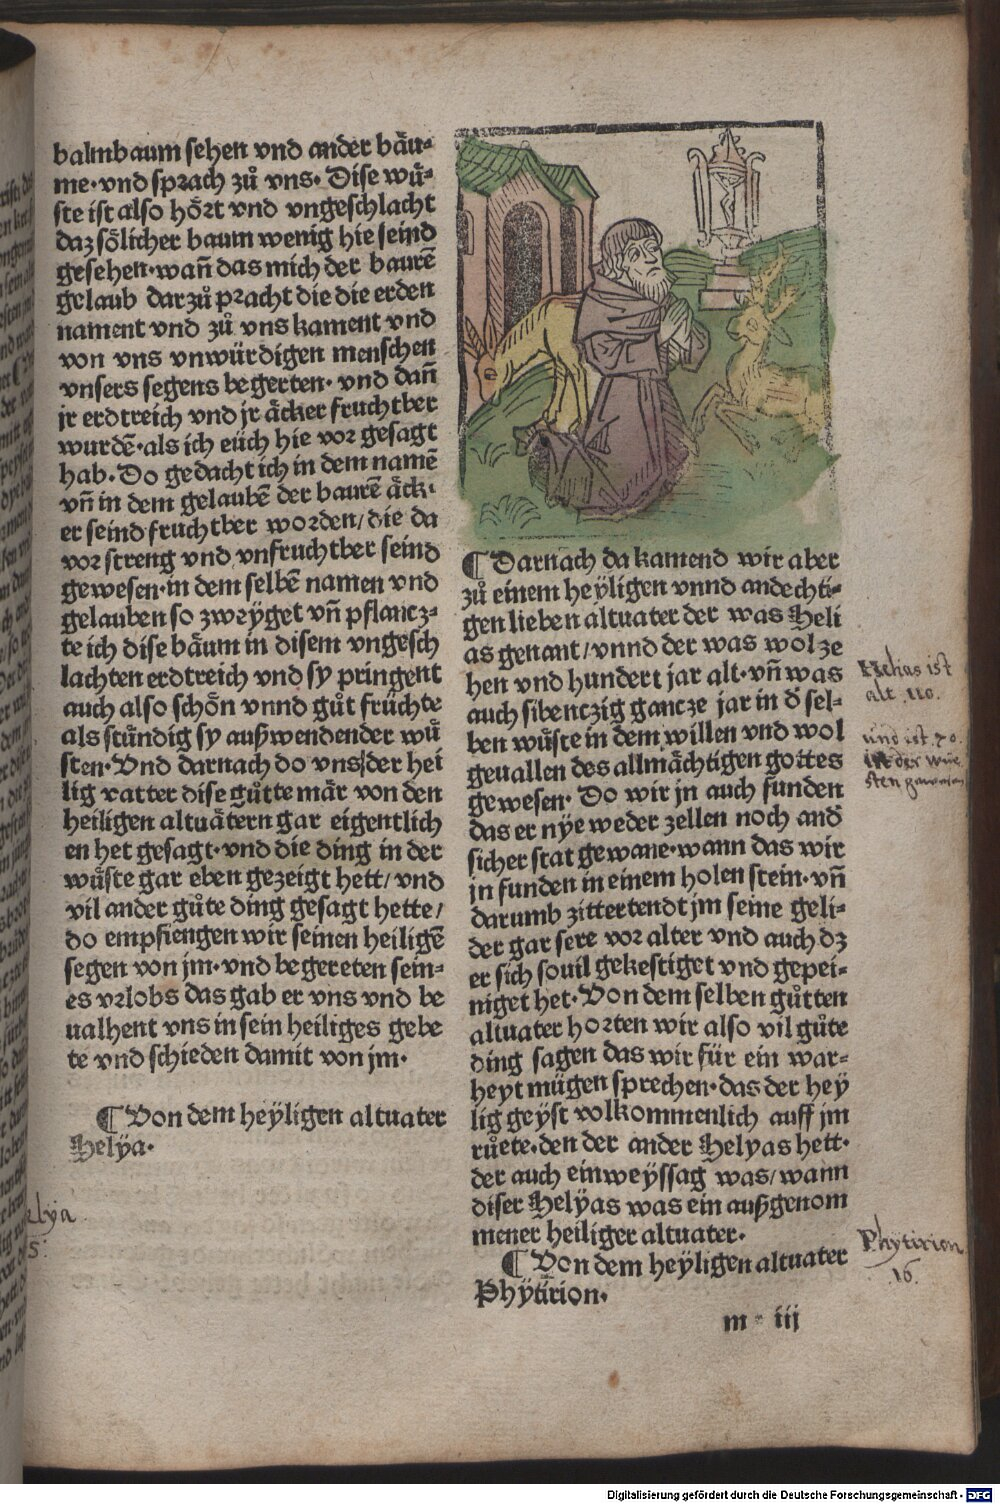 balmbaum sehen vnd ander bäu⸗
me·vnd sprach zů vns· Dise wů⸗
ste ist also hört vnd vngeschlacht
daz sőlicher baum wenig hie seind
gesehen·wañ das mich der baurē
gelaub darzů pracht die die erden
nament vnd zů vns kament vnd
von vns vnwürdigen menschen
vnsers segens begerten· vnd dañ
jr erdtreich vnd jr äcker fruchtber
wurdē·als ich eüch hie vor gesagt
hab· Do gedacht ich in dem namē
vñ in dem gelaubē der baurē äck⸗
er seind fruchtber worden/die da
vor streng vnd vnfruchtber seind
gewesen·in dem selbē namen vnd
gelauben so zweyget vñ pflancz⸗
te ich dise bäum in disem vngesch
lachten erdtreich vnd sy pringent
auch also schőn vnnd gůt früchte
als stündig sy außwendender wů
sten· Vnd darnach do vns der hei
lig vatter dise gůtte mär von den
heiligen altuätern gar eigentlich
en het gesagt·vnd die ding in der
wůste gar eben gezeigt hett/vnd
vil ander gůte ding gesagt hette/
do empfiengen wir seinen heiligē
segen von jm·vnd begereten sein⸗
es vrlobs das gab er vns vnd be
ualhent vns in sein heiliges gebe
te vnd schieden damit von jm·
¶ Von dem heyligen altuater
Helya·
¶ Darnach da kamend wir aber
zů einem heyligen vnnd andechti⸗
gen lieben altuater der was Heli
as genant/vnnd der was wol ze
hen vnd hundert jar alt·vñ was
auch sibenczig gancze jar in d̕ sel⸗
ben wůste in dem willen vnd wol
geuallen des allmächtigen gottes
gewesen· Do wir jn auch funden
das er nye weder zellen noch and̕
sicher stat gewane·wann das wir
jn funden in einem holen stein·vñ
darumb zittertendt jm seine geli⸗
der gar sere vor alter vnd auch dz
er sich souil gekestiget vnd gepei⸗
niget het· Von dem selben gůtten
altuater horten wir also vil gůte
ding sagen das wir für ein war⸗
heyt mügen sprechen·das der hey
lig geyst volkommenlich auff jm
růete·den der ander Helyas hett·
der auch ein weyssag was/wann
diser Helyas was ein außgenom
mener heiliger altuater·
¶ Von dem heyligen altuater
Phytirion·
m iij
Helias ist
alt 110.
und ist 70.
in der wue
sten gewesen
Phytirion
16.
elya
Digitalisierung gefördert durch die Deutsche Forschungsgemeinschaft - DFG